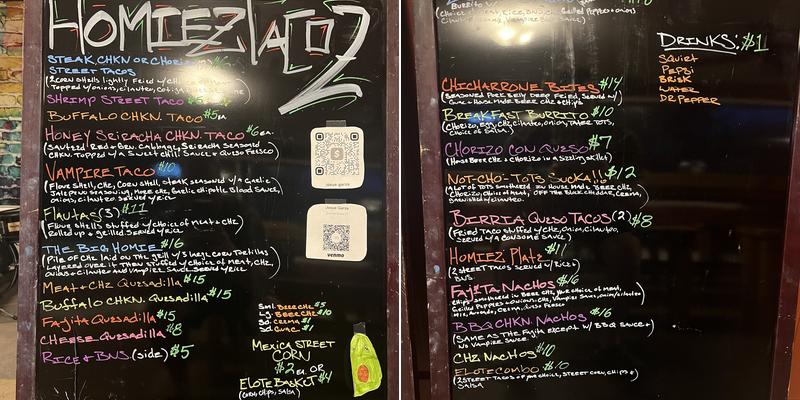 HOMIEZ TACOZ
STEAK, CHKN OR CHORIZO
STREET TACOS
(2 CORN SHELLS LIGHTLY FRIED W/
TOPPED W/ ONIONS, CILANTRO,
SHRIMP STREET TACO
BUFFALO CHKN. TACO $5EA
HONEY SRIRACHA CHKN TACO $6EA.
(SAUTEED RED + GRN. CABBAGE, SRIRACHA SEASONED
CHKN. TOPPED W/ A SWEET CHILI SAUCE + QUESO FRESCO
VAMPIRE TACO $10
(FLOUR SHELL, CHZ, CORN SHELL, STEAK SEASONED W/ A GARLIC
JALEPENO SEASONING, MORE CHZ, GARLIC CHIPOTLE BLOOD SAUCE,
ONIONS, CILANTRO SERVED W/ RICE
FLAUTAS (3) $11
(FLOUR SHELLS STUFFED W/ CHOICE OF MEAT + CHZ
ROLLED UP + GRILLED. SERVED W/ RICE
THE BIG HOMIE $16
(PILE OF CHZ LAID ON THE GRILL W/ 3 LARGE CORN TORTILLAS
LAYERED OVER IT THEN STUFFED W/ CHOICE OF MEAT, CHZ,
ONIONS + CILANTRO AND VAMPIRE SAUCE. SERVED W/ RICE
MEAT + CHZ QUESADILLA $15
BUFFALO CHKN. QUESADILLA $15
FAJITA QUESADILLA $15
CHEESE QUESADILLA $8
RICE + BNS. (SIDE) $5
venmo
SML. BEER CHZ $5
LG. BEER CHZ $10
SD. CREMA $1
SD. GUAC. $1
MEXICA STREET
CORN
$2 EA. OR
ELOTE BASKET $4
(CORN, CHIPS, SALSA)
BURRITO
GRILLED PEPPERS + ONIONS
CILANTRO, VAMPIRE SAUCE)
DRINKS: $1
SQUIRT
PEPSI
BRISK
WATER
DR PEPPER
CHICHARRONE BITES $14
(SEASONED PORK BELLY DEEP FRIED, SERVED W/
GUAC + HOUSE MADE BEER CHZ + CHIPS
BREAKFAST BURRITO $10
(CHORIZO, EGG, CHZ, CILANTRO, ONION, TATER TOTS,
CHOICE OF SALSA)
CHORIZO CON QUESO $7
(HOUSE BEER CHZ + CHORIZO IN A SIZZLING SKILLET)
NOT-CHO-TOTS SUCKA!! $12
(A LOT OF TOTS SMOTHERED IN HOUSE MADE BEER CHZ,
CHORIZO, CHOICE OF MEAT, OFF THE BLOCK CHEDDAR, CREMA,
GARNISHED W/ CILANTRO.
BIRRIA QUESO TACOS (2) $8
(FRIED TACO STUFFED W/ CHZ, ONION, CILANTRO.
SERVED W/ A CONSOME SAUCE)
HOMIEZ PLATE $11
(2 STREET TACOS SERVED W/ RICE +
BNS.
FAJITA NACHOS $16
CHIPS SMOTHERED IN BEER CHZ, YOUR CHOICE OF MEAT,
GRILLED PEPPERS + ONIONS, CHZ, VAMPIRE SAUCE, ONION/CILANTRO
BBQ CHKN. NACHOS $16
(SAME AS THE FAJITA EXCEPT W/ BBQ SAUCE +
NO VAMPIRE SAUCE.
CHZ NACHOS $10
ELOTE COMBO $10
(2 STREET TACOS OF YOUR CHOICE, STREET CORN, CHIPS +
SALSA